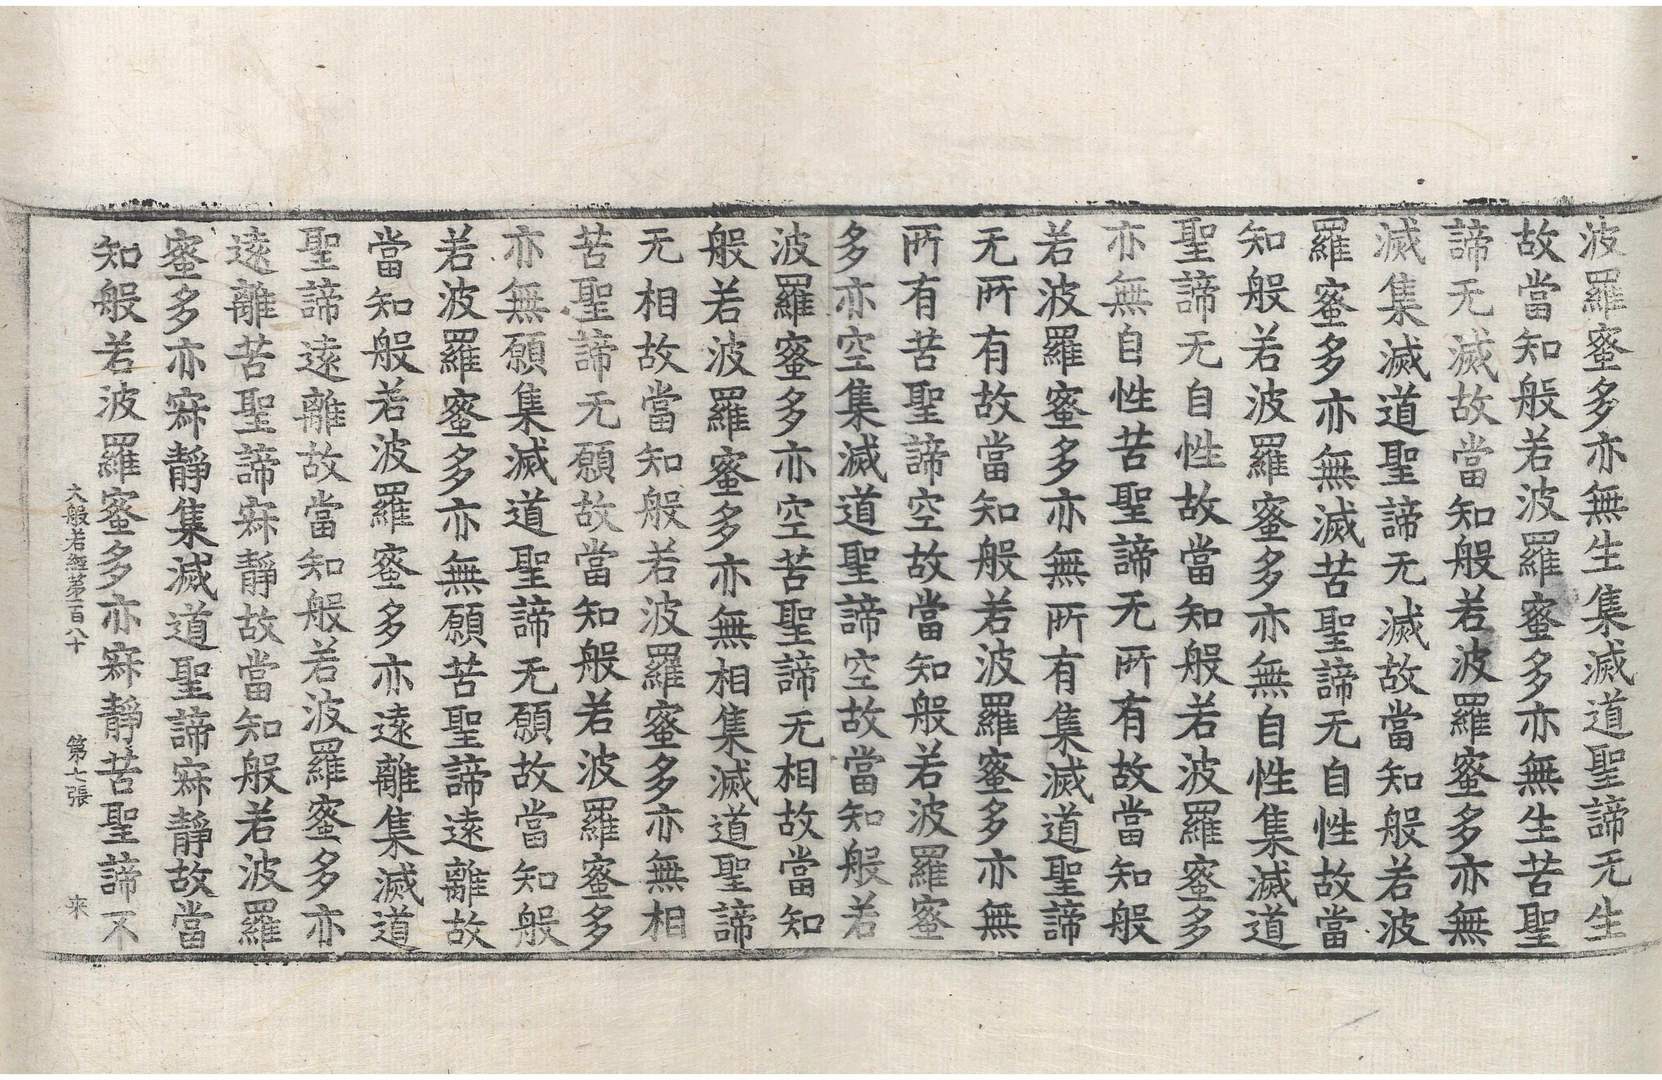 波羅蜜多亦無生集滅道聖諦无生
故當知般若波羅蜜多亦無生苦聖
諦无滅故當知般若波羅蜜多亦無
滅集滅道聖諦无滅故當知般若波
羅蜜多亦無滅苦聖諦无自性故當
知般若波羅蜜多亦無自性集滅道
聖諦无自性故當知般若波羅蜜多
亦無自性苦聖諦无所有故當知般
若波羅蜜多亦無所有集滅道聖諦
无所有故當知般若波羅蜜多亦無
所有苦聖諦空故當知般若波羅蜜
多亦空集滅道聖諦空故當知般若
波羅蜜多亦空苦聖諦无相故當知
般若波羅蜜多亦無相集滅道聖諦
无相故當知般若波羅蜜多亦無相
苦聖諦无願故當知般若波羅蜜多
亦無願集滅道聖諦无願故當知般
若波羅蜜多亦無願苦聖諦遠離故
當知般若波羅蜜多亦遠離集滅道
聖諦遠離故當知般若波羅蜜多亦
遠離苦聖諦寂靜故當知般若波羅
蜜多亦寂靜集滅道聖諦寂靜故當
知般若波羅蜜多亦寂靜苦聖諦不
大般若經苐一百八十 第七張 来